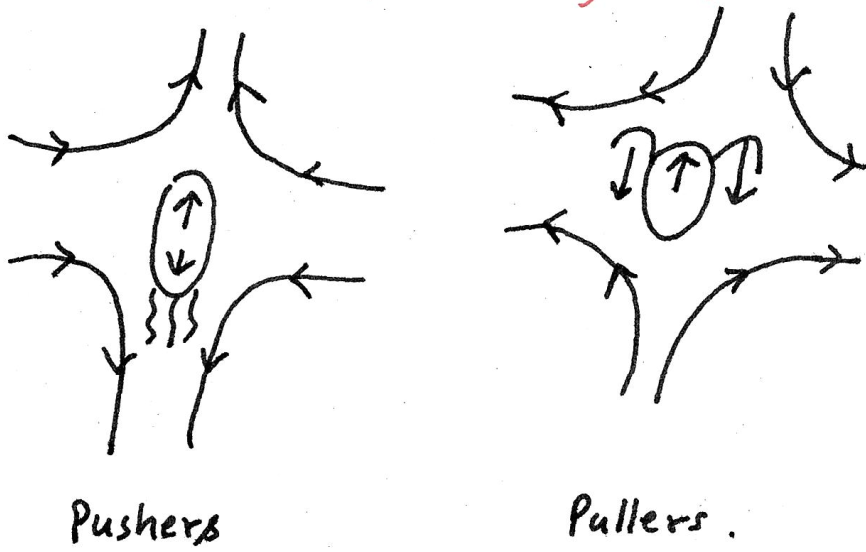 Pushers
Pullers.